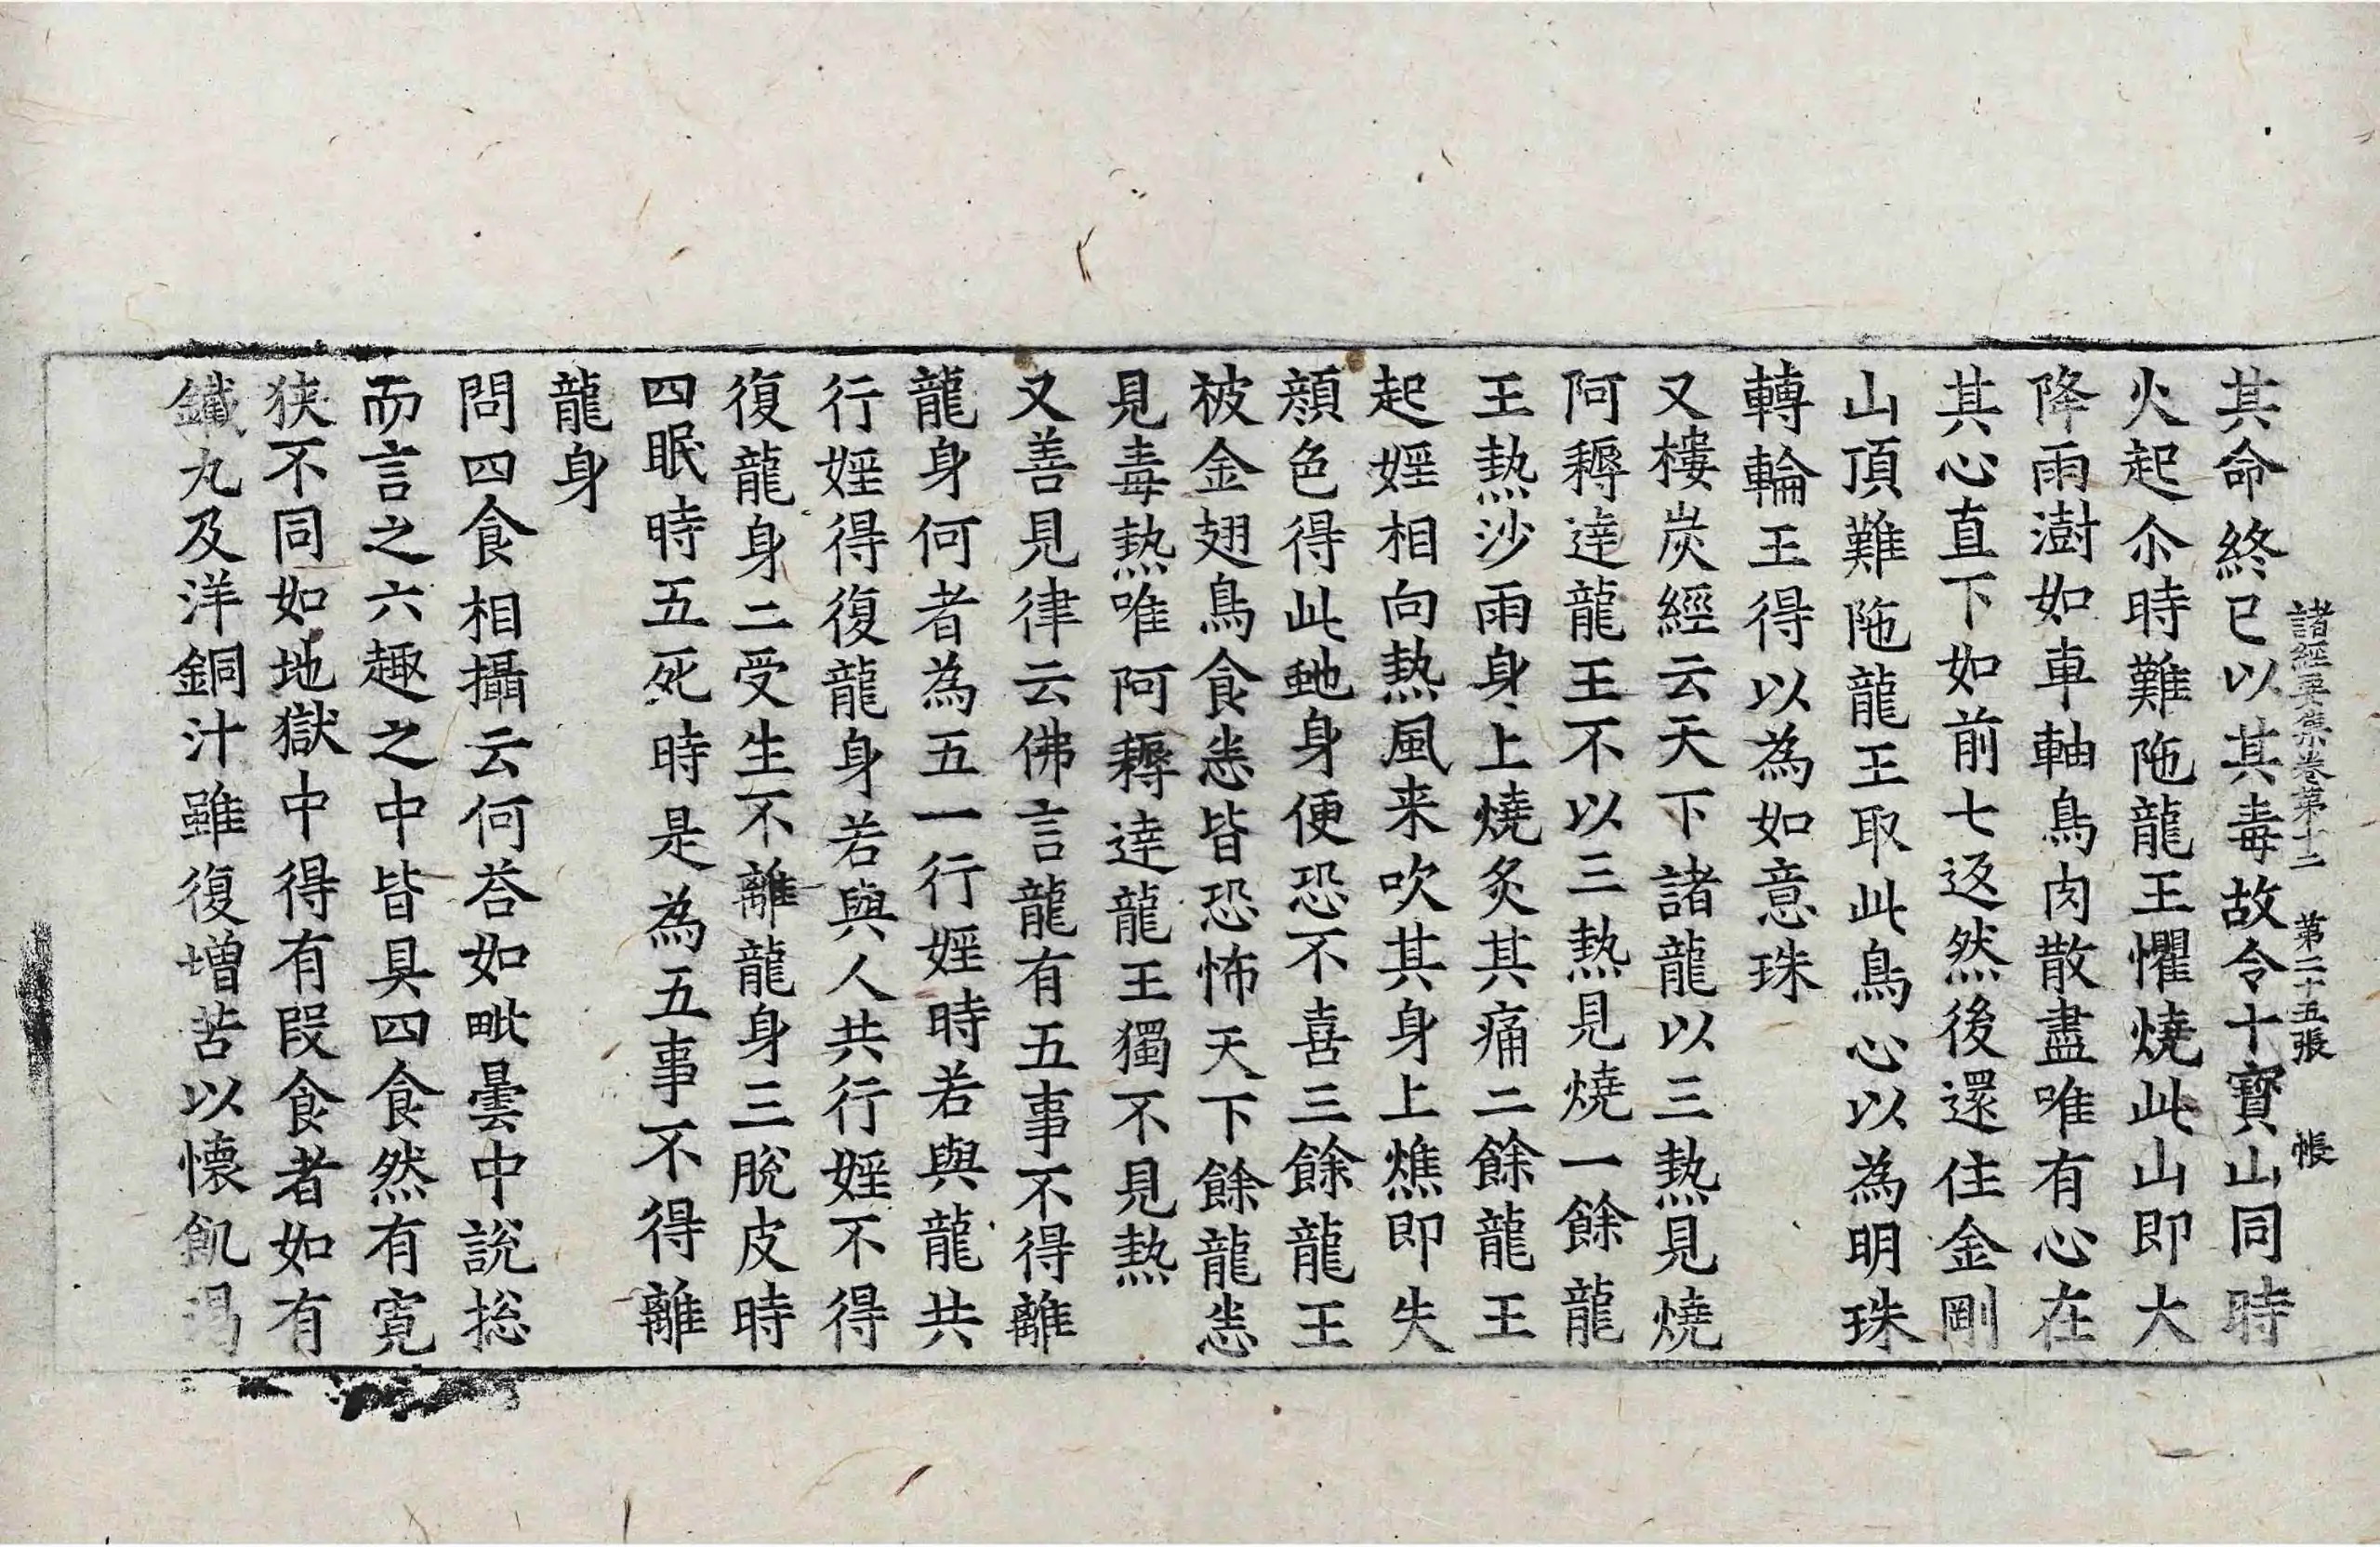 諸經要集卷第十二 第二十五張 帳
其命終已以其毒故令十寶山同時
火起尒時難陁龍王懼燒此山即大
降雨澍如車軸鳥肉散盡唯有心在
其心直下如前七返然後還住金剛
山頂難陁龍王取此鳥心以為明珠
轉輪王得以為如意珠
又樓炭經云天下諸龍以三熱見燒
阿耨達龍王不以三熱見燒一餘龍
王熱沙雨身上燒炙其痛二餘龍王
起婬相向熱風来吹其身上燋即失
顔色得此虵身便恐不喜三餘龍王
被金翅鳥食恙皆恐怖天下餘龍恙
見毒熱唯阿耨達龍王獨不見熱
又善見律云佛言龍有五事不得離
龍身何者為五一行婬時若與龍共
行婬得復龍身若與人共行婬不得
復龍身二受生不離龍身三脫皮時
四眠時五死時是為五事不得離
龍身
問四食相攝云何荅如毗曇中說捴
而言之六趣之中皆具四食然有寬
狹不同如地獄中得有叚食者如有
鐵丸及洋銅汁雖復增苦以懷飢渴